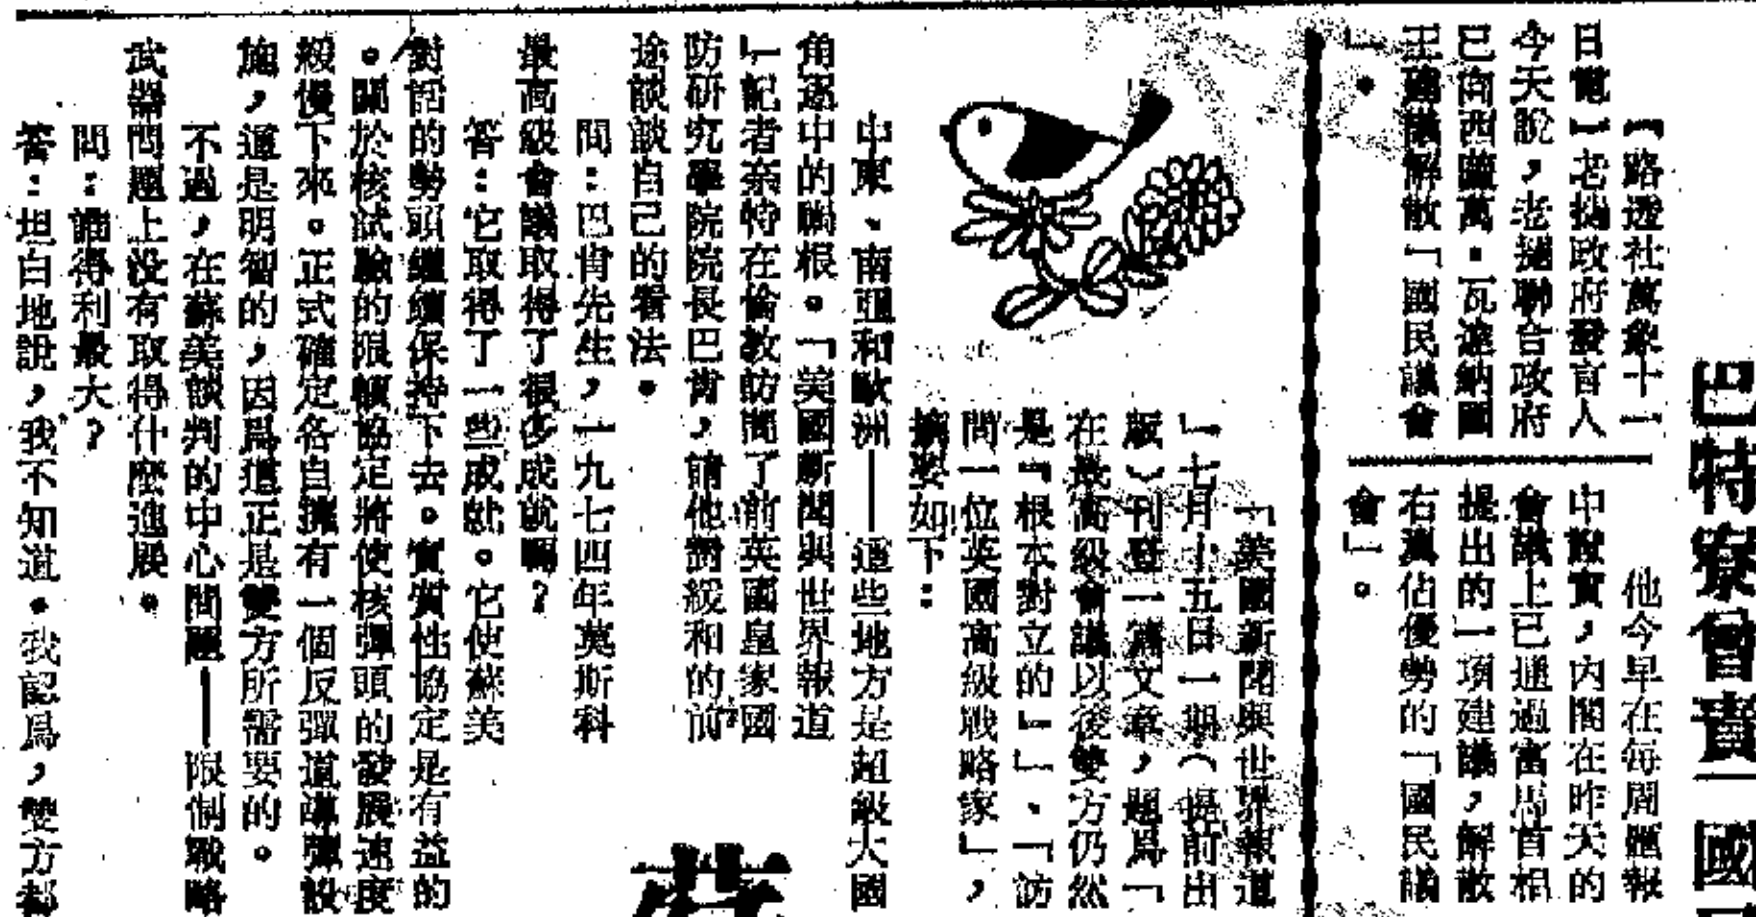 巴特寮曾責「國
【路透社萬象十一
日電】老撾政府發言人
今天說，老撾聯合政府
已向西薩萬·瓦達納國
王建議解散「國民議會
」。
他今早在每周匯報
中證實，內閣在昨天的
會議上已通過富馬首相
提出的一項建議，解散
右翼佔優勢的「國民議
會」。
「美國新聞與世界報道
」七月十五日一期（提前出
版）刊登一篇文章，題爲「
在最高級會議以後雙方仍然
是『根本對立的』」、「訪
問一位英國高級戰略家」，
摘要如下：
中東、南亞和歐洲——這些地方是超級大國
角逐中的禍根。「美國新聞與世界報道
」記者奈特在倫敦訪問了前英國皇家國
防研究學院院長巴肯，請他對緩和的前
途談談自己的看法。
問：巴肯先生，一九七四年莫斯科
最高級會議取得了很多成就嗎？
答：它取得了一些成就。它使蘇美
對話的勢頭繼續保持下去。實質性協定是有益的
。關於核試驗的限額協定將使核彈頭的發展速度
緩慢下來。正式確定各自擁有一個反彈道導彈設
施，這是明智的，因爲這正是雙方所需要的。
不過，在蘇美談判的中心問題——限制戰略
武器問題上沒有取得什麼進展。
問：誰得利最大？
答：坦白地說，我不知道。我認爲，雙方都